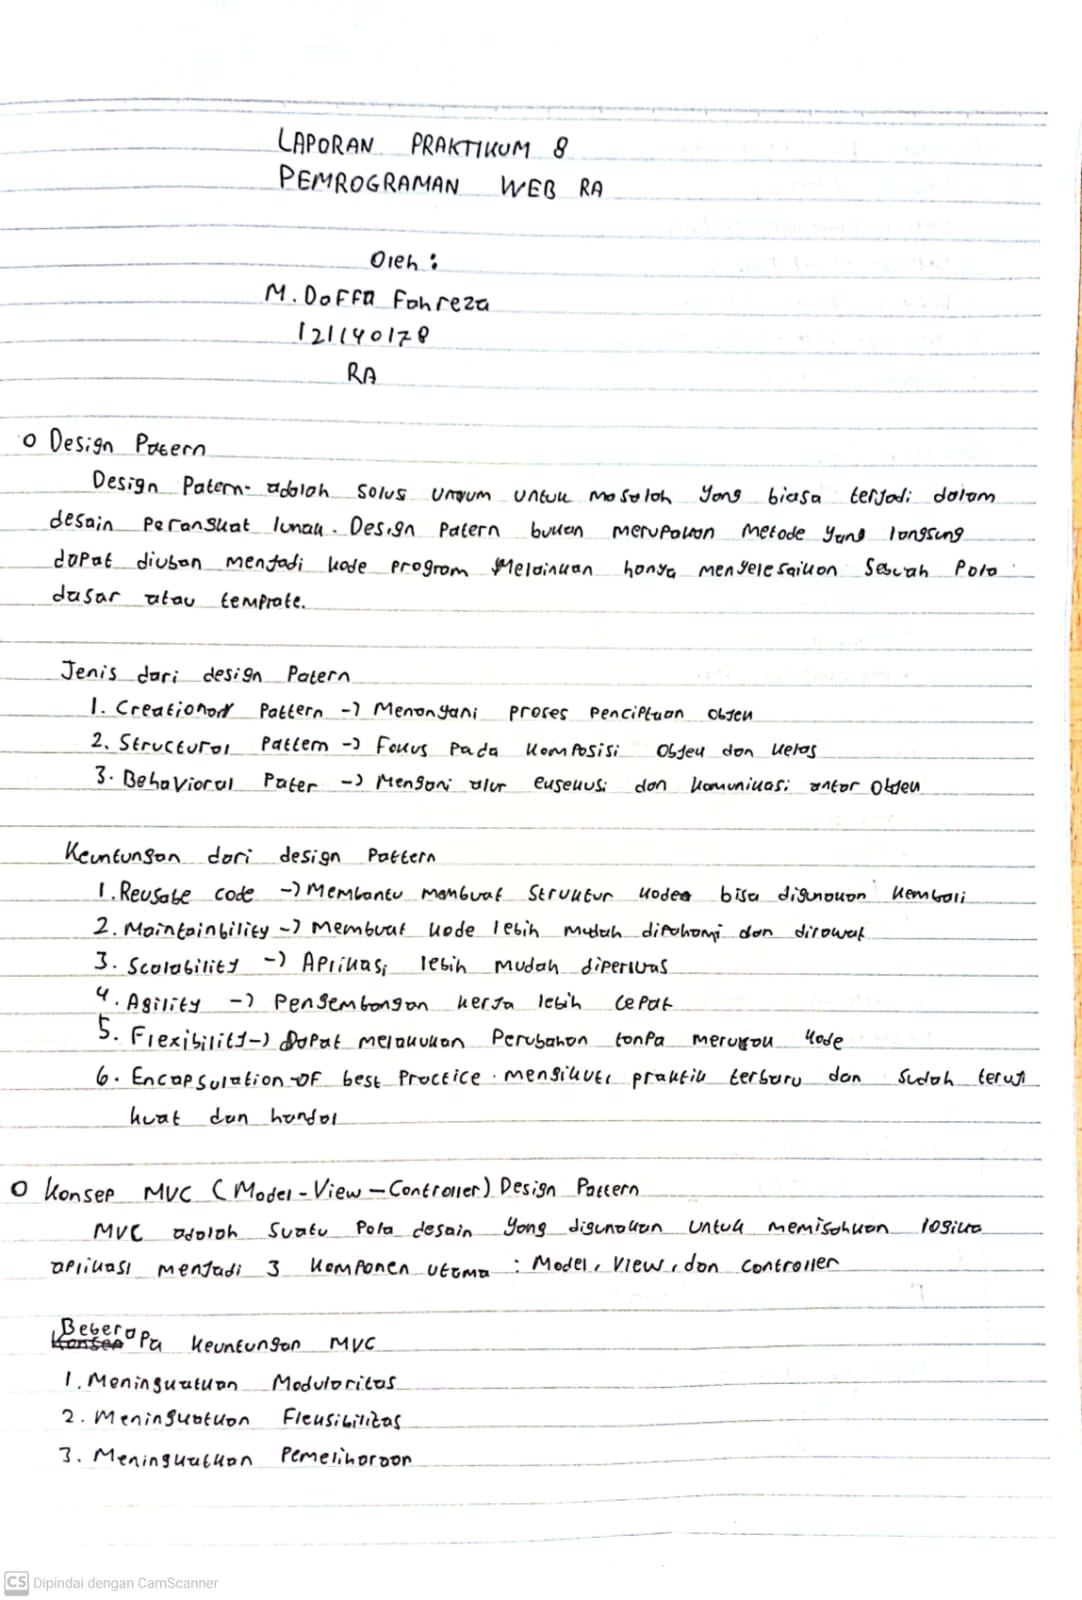 LAPORAN PRAKTIKUM 8
PEMROGRAMAN WEB RA
Oleh :
M. Daffa Fahreza
121140178
RA
o Design Patern
Design Patern adalah solus umum untuk masalah yang biasa terjadi dalam
desain perangkat lunak. Design patern bukan merupakan metode yang langsung
dapat diubah menjadi kode program Melainkan hanya menyelesaikan sebuah pola
dasar atau template.
Jenis dari design Patern
1. Creational Pattern -> Menangani proses penciptaan objek
2. Structural Pattern -> Fokus pada komposisi objek dan kelas
3. Behavioral Pater -> Mengani alur eksekusi dan komunikasi antar objek
Keuntungan dari design Pattern
1. Reusabe code -> Membantu membuat struktur kode bisa digunakan kembali
2. Maintainbility -> Membuat kode lebih mudah dipahami dan dirawat
3. Scalability -> Aplikasi lebih mudah diperluas
4. Agility -> Pengembangan kerja lebih cepat
5. Flexibility -> Dapat melakukan perubahan tanpa merusak kode
6. Encapsulation OF best Practice. mengikuti praktik terbaru dan sudah teruji
kuat dan handal
o Konsep MVC (Model-View-Controller) Design Pattern
MVC adalah suatu pola desain yang digunakan untuk memisahkan logika
aplikasi menjadi 3 komponen utama : Model, View, dan Controller
Beberapa keuntungan MVC
1. Meningkatkan Modularitas
2. Meningkatkan Fleksibilitas
3. Meningkatkan Pemeliharaan
CS Dipindai dengan CamScanner